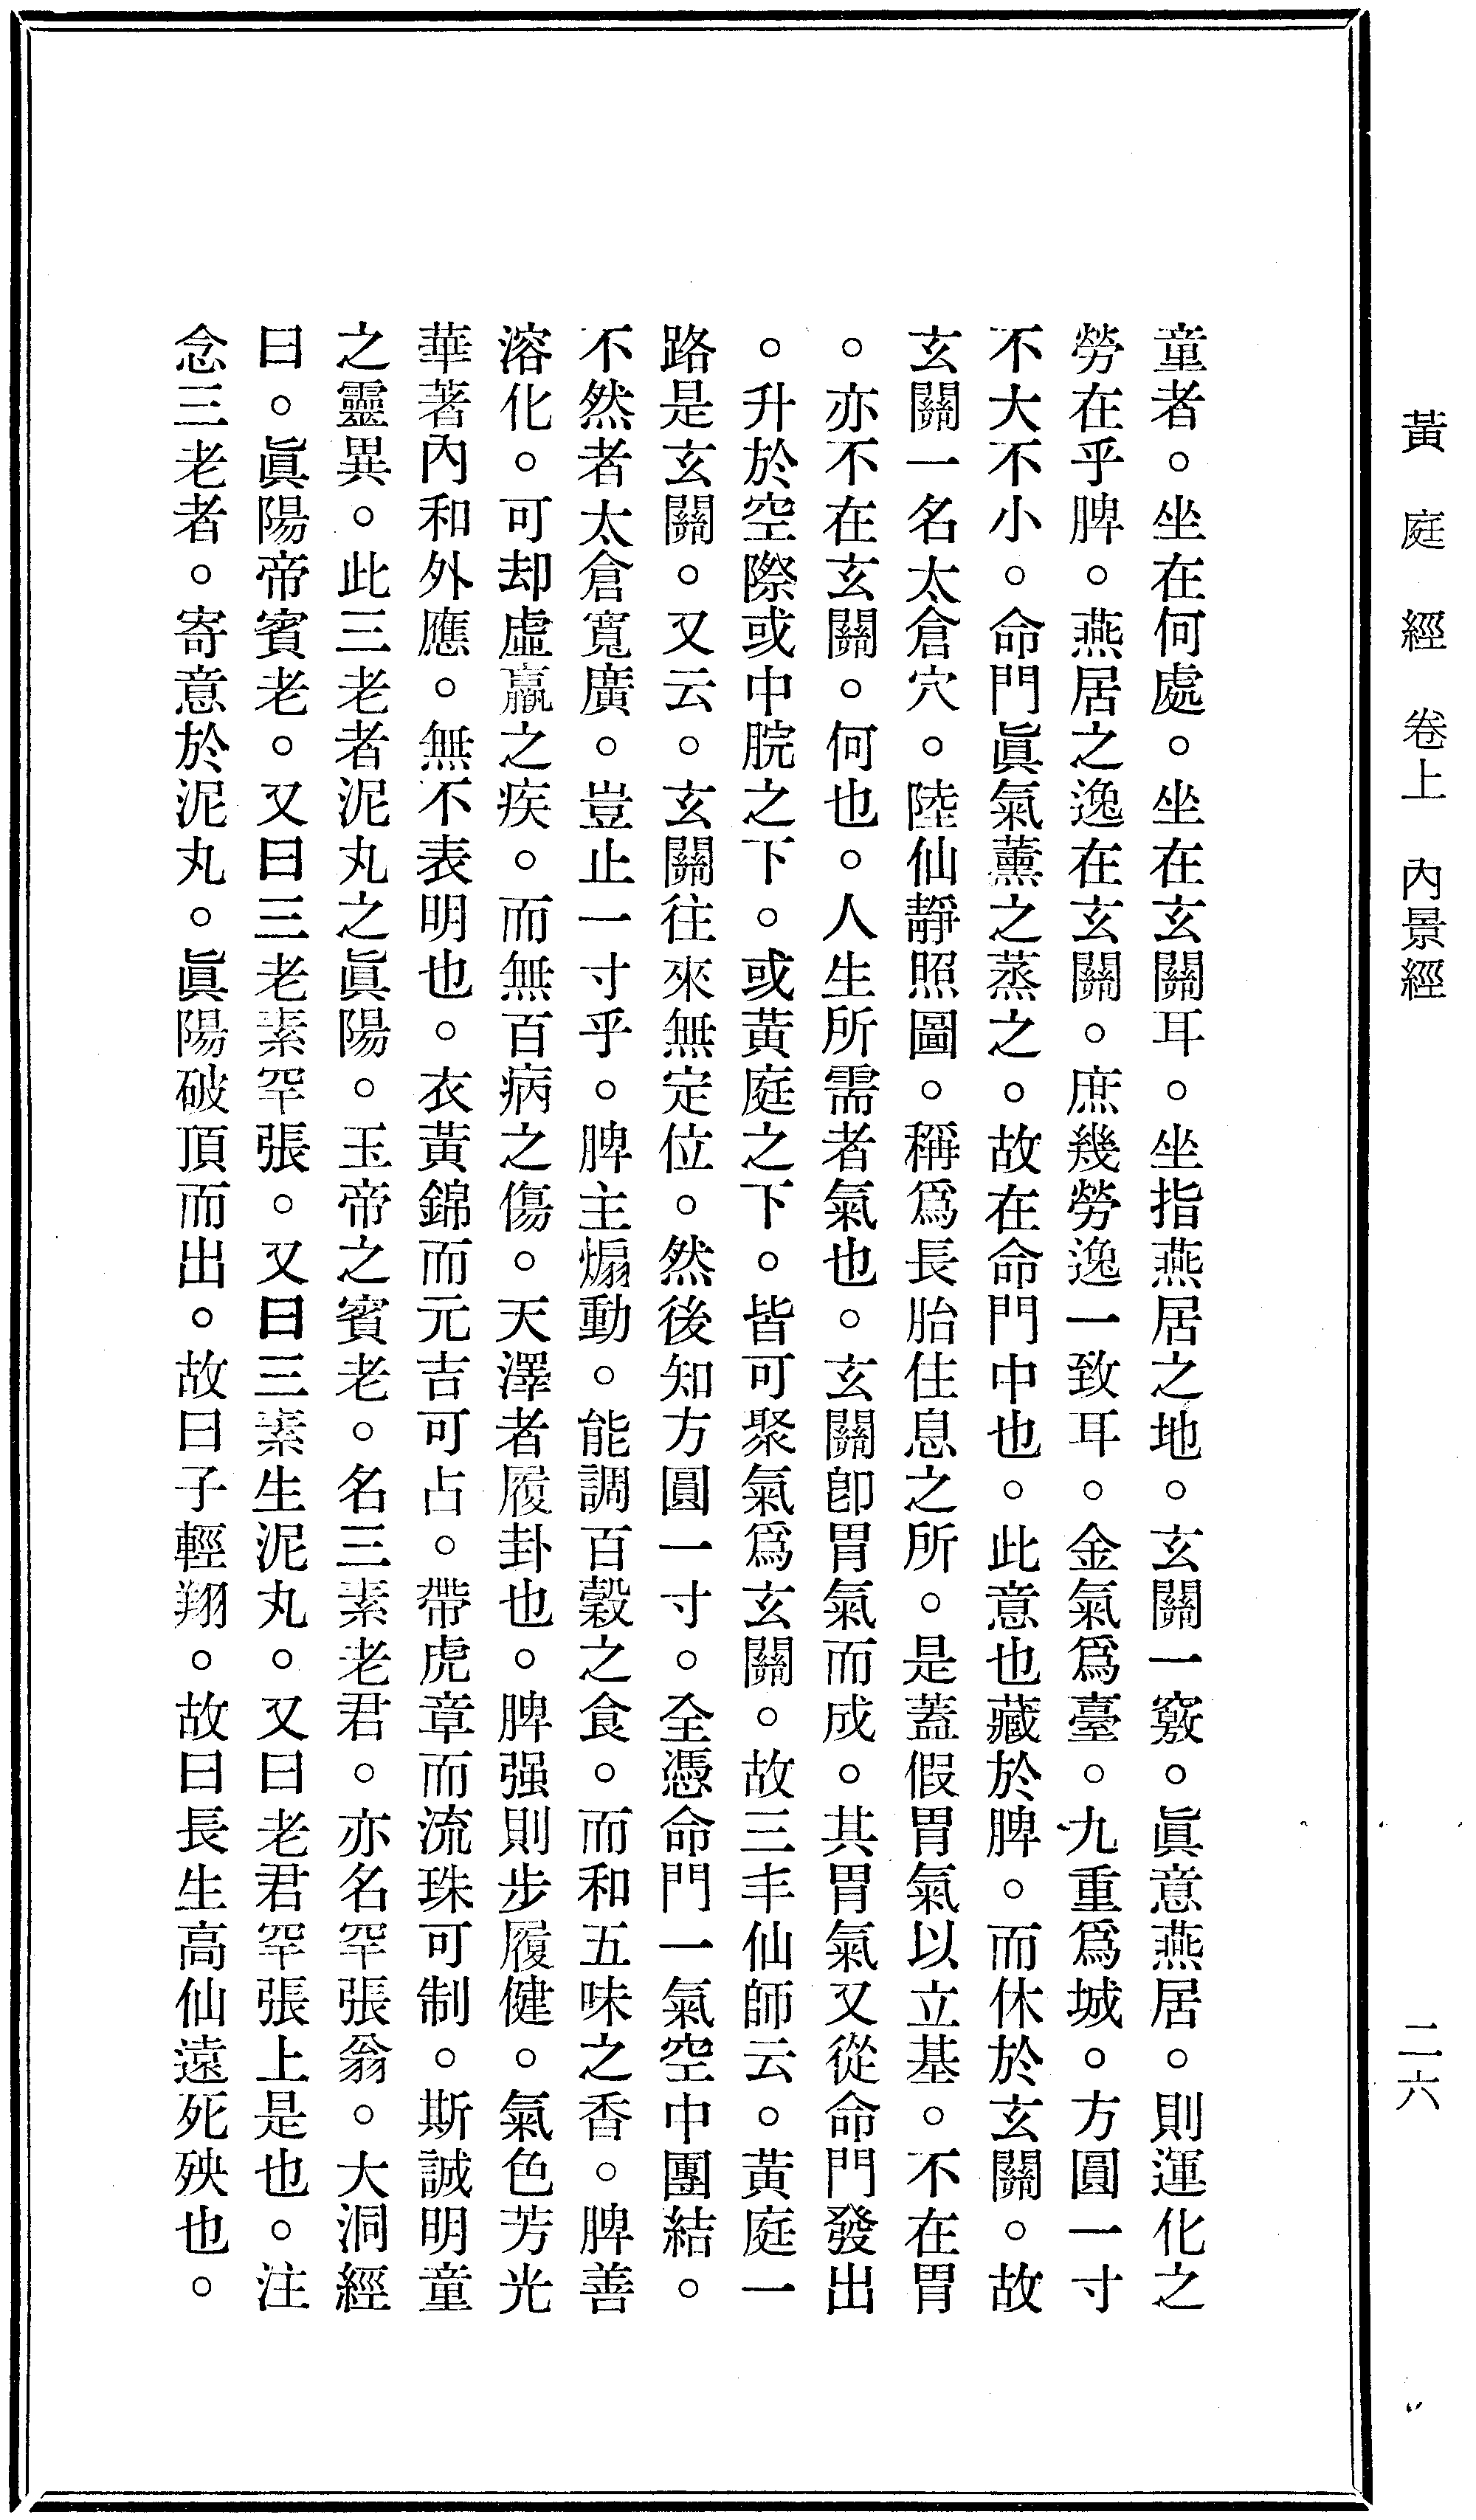 黃庭經 卷上 內景經 二六
童者。坐在何處。坐在玄關耳。坐指燕居之地。玄關一竅。眞意燕居。則運化之
勞在乎脾。燕居之逸在玄關。庶幾勞逸一致耳。金氣爲臺。九重爲城。方圓一寸
不大不小。命門眞氣薰之蒸之。故在命門中也。此意也藏於脾。而休於玄關。故
玄關一名太倉穴。陸仙靜照圖。稱爲長胎住息之所。是蓋假胃氣以立基。不在胃
。亦不在玄關。何也。人生所需者氣也。玄關卽胃氣而成。其胃氣又從命門發出
。升於空際或中脘之下。或黃庭之下。皆可聚氣爲玄關。故三丰仙師云。黃庭一
路是玄關。又云。玄關往來無定位。然後知方圓一寸。全憑命門一氣空中團結。
不然者太倉寬廣。豈止一寸乎。脾主煽動。能調百穀之食。而和五味之香。脾善
溶化。可却虛羸之疾。而無百病之傷。天澤者履卦也。脾强則步履健。氣色芳光
華著內和外應。無不表明也。衣黃錦而元吉可占。帶虎章而流珠可制。斯誠明童
之靈異。此三老者泥丸之眞陽。玉帝之賓老。名三素老君。亦名罕張翁。大洞經
曰。眞陽帝賓老。又曰三老素罕張。又曰三素生泥丸。又曰老君罕張上是也。注
念三老者。寄意於泥丸。眞陽破頂而出。故曰子輕翔。故曰長生高仙遠死殃也。